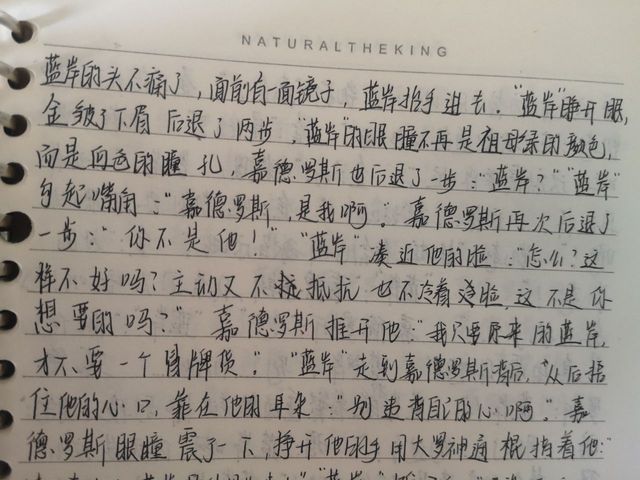 NATURALTHEKING
蓝岸的头不痛了,面前有一面镜子,蓝岸抬手进去。"蓝岸"睁开眼,
金皱了下眉 后退了两步,"蓝岸"的眼瞳不再是祖母绿的颜色,
而是白色的瞳孔,嘉德罗斯也后退了一步:"蓝岸?""蓝岸"
勾起嘴角:"嘉德罗斯,是我啊。"嘉德罗斯再次后退了
一步:"你不是他!""蓝岸"凑近他的脸:"怎么?这
样不好吗?主动又不 抵抗 也不冷着 脸,这不是你
想要的吗?"嘉德罗斯推开他:"我只要原来的蓝岸,
才不要一个冒牌货。""蓝岸"走到嘉德罗斯背后,从后捂
住他的心口,靠在他的耳朵:"别违背自己的心啊。"嘉
德罗斯眼瞳震了一下,挣开他的手用大罗神通棍指着他:"